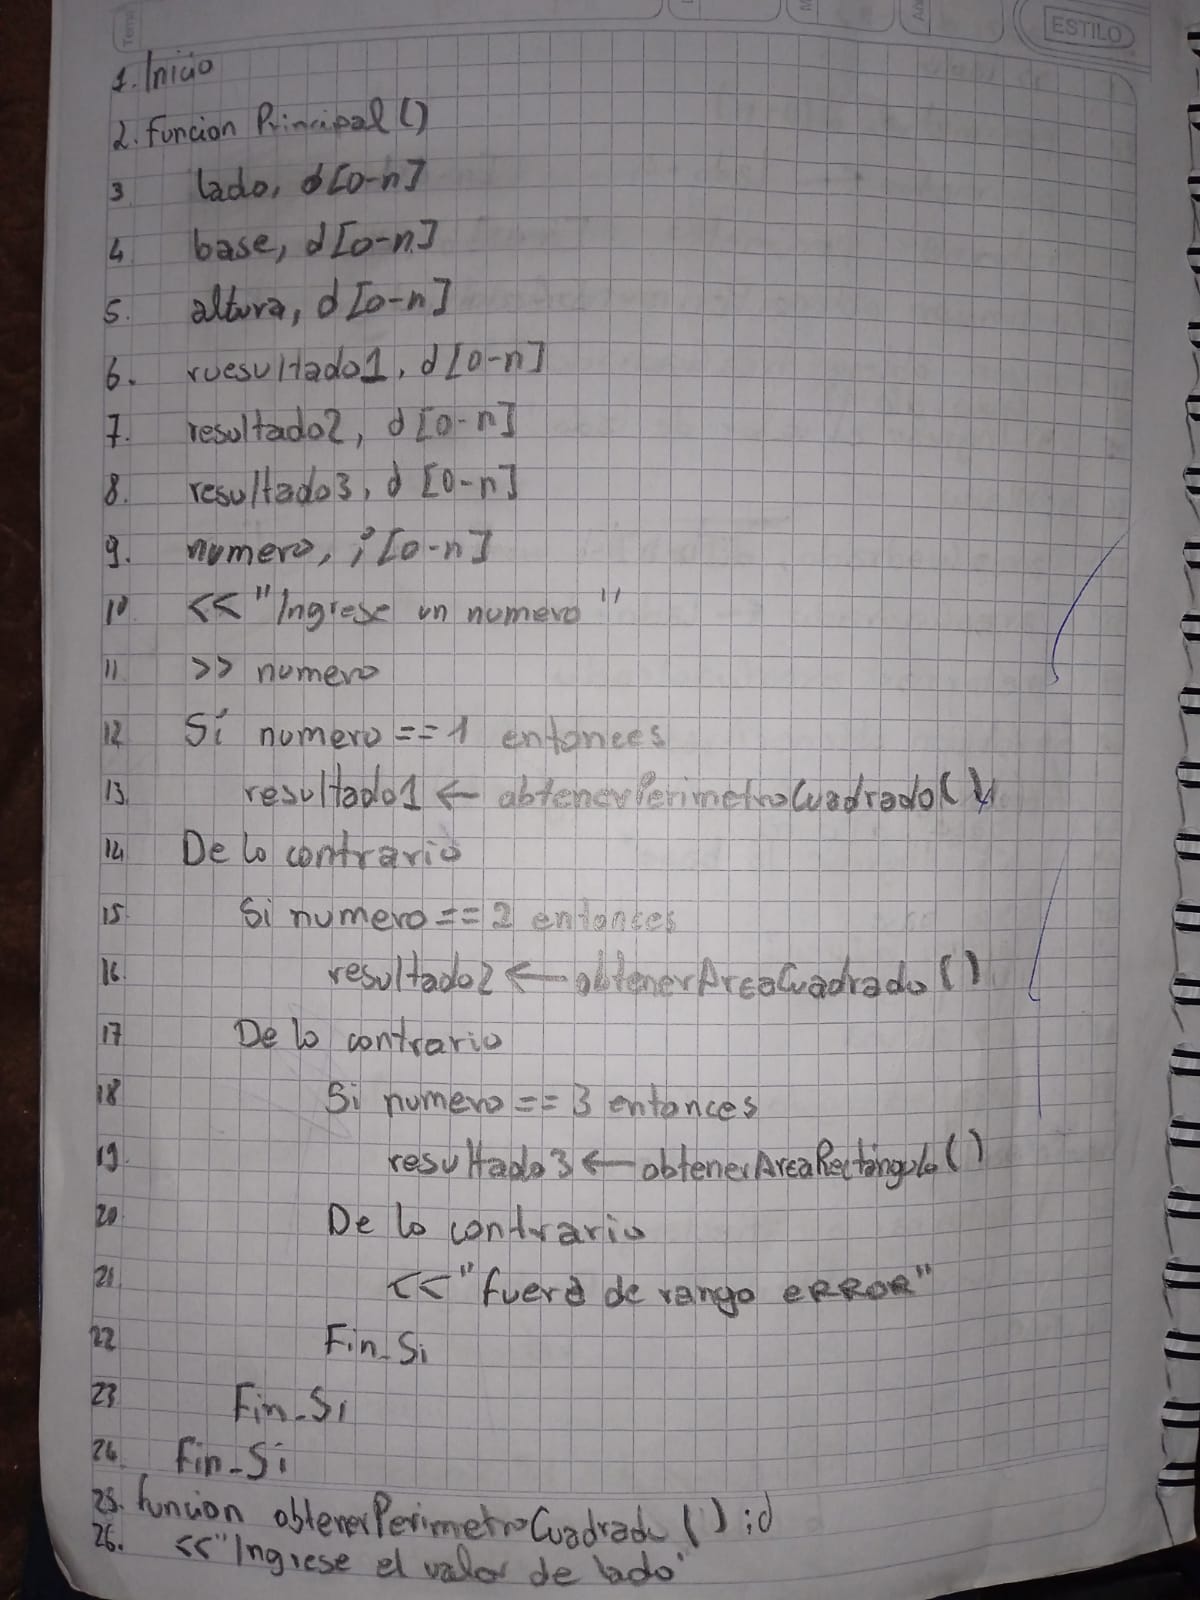 ESTILO
1. Inicio
2. Funcion Principal ()
3 lado, d [0-n]
4 base, d [0-n]
5. altura, d [0-n]
6. ruesultado1, d [0-n]
7. resultado2, d [0-n]
8. resultado3, d [0-n]
9. numero, i [0-n]
10 << "Ingrese un numero"
11 >> numero
12 Si numero == 1 entonces
13. resultado1 ← obtenerPerimetroCuadrado()
14 De lo contrario
15 Si numero == 2 entonces
16. resultado2 ← obtenerAreaCuadrado ()
17 De lo contrario
18 Si numero == 3 entonces
19. resultado3 ← obtenerAreaRectángulo ()
20 De lo contrario
21 << "fuera de rango ERROR"
22 Fin_Si
23 Fin_Si
24. Fin_Si
25. funcion obtenerPerimetroCuadrado () ; d
26. << "Ingrese el valor de lado"